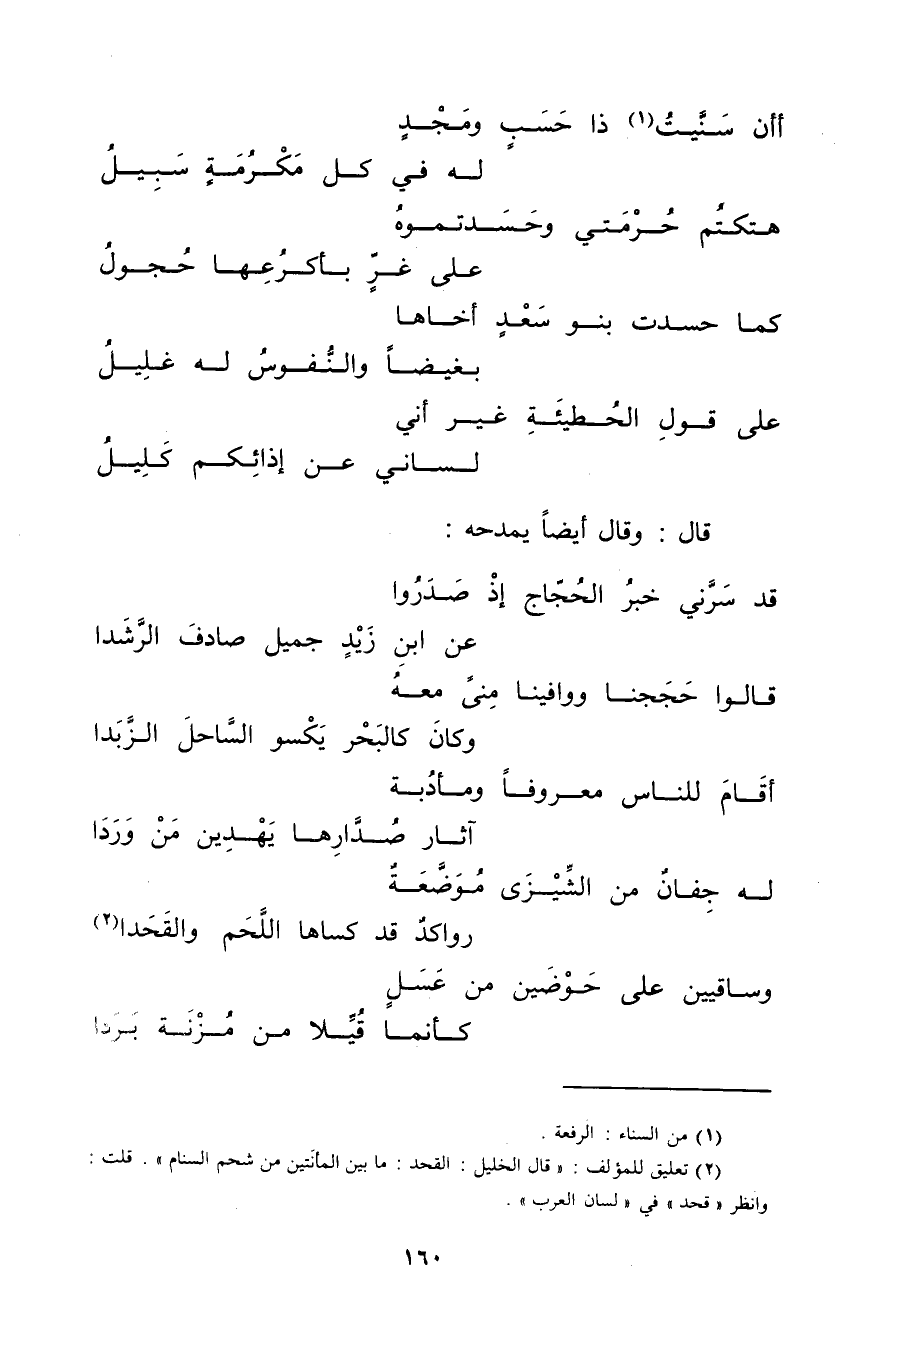 أأن سَنَّيتُ(١) ذا حَسَبٍ ومَجْدٍ
له في كل مَكْرُمَةٍ سَبِيلُ
هتكتُم حُرْمَتي وحَسَدتموهُ
على غرٍّ بأكرُعِها حُجولُ
كما حسدت بنو سَعْدٍ أخاها
بغيضاً والنُّفوسُ له غلِيلُ
على قولِ الحُطيئَةِ غير أني
لساني عن إذائِكم كَلِيلُ
قال : وقال أيضاً يمدحه :
قد سَرَّني خبرُ الحُجّاج إذْ صَدَرُوا
عن ابنِ زَيْدٍ جميل صادفَ الرَّشَدا
قالوا حَجَجنا ووافينا مِنىً معهُ
وكانَ كالبَحْر يَكْسو السَّاحلَ الزَّبَدا
أقَامَ للناس معروفاً ومأدُبة
آثار صُدَّارِها يَهْدِين مَنْ وَرَدَا
له جِفانٌ من الشِّيْزَى مُوَضَّعَةٌ
رواكدٌ قد كساها اللَّحَم والقَحَدا(٢)
وساقيين على حَوْضَين من عَسَلٍ
كأنما قُيِّلا من مُزْنَة بَرَدا
(١) من السناء : الرفعة .
(٢) تعليق للمؤلف : « قال الخليل : القحد : ما بين المأنَتين من شحم السنام » . قلت :
وانظر « قحد » في « لسان العرب » .
١٦٠